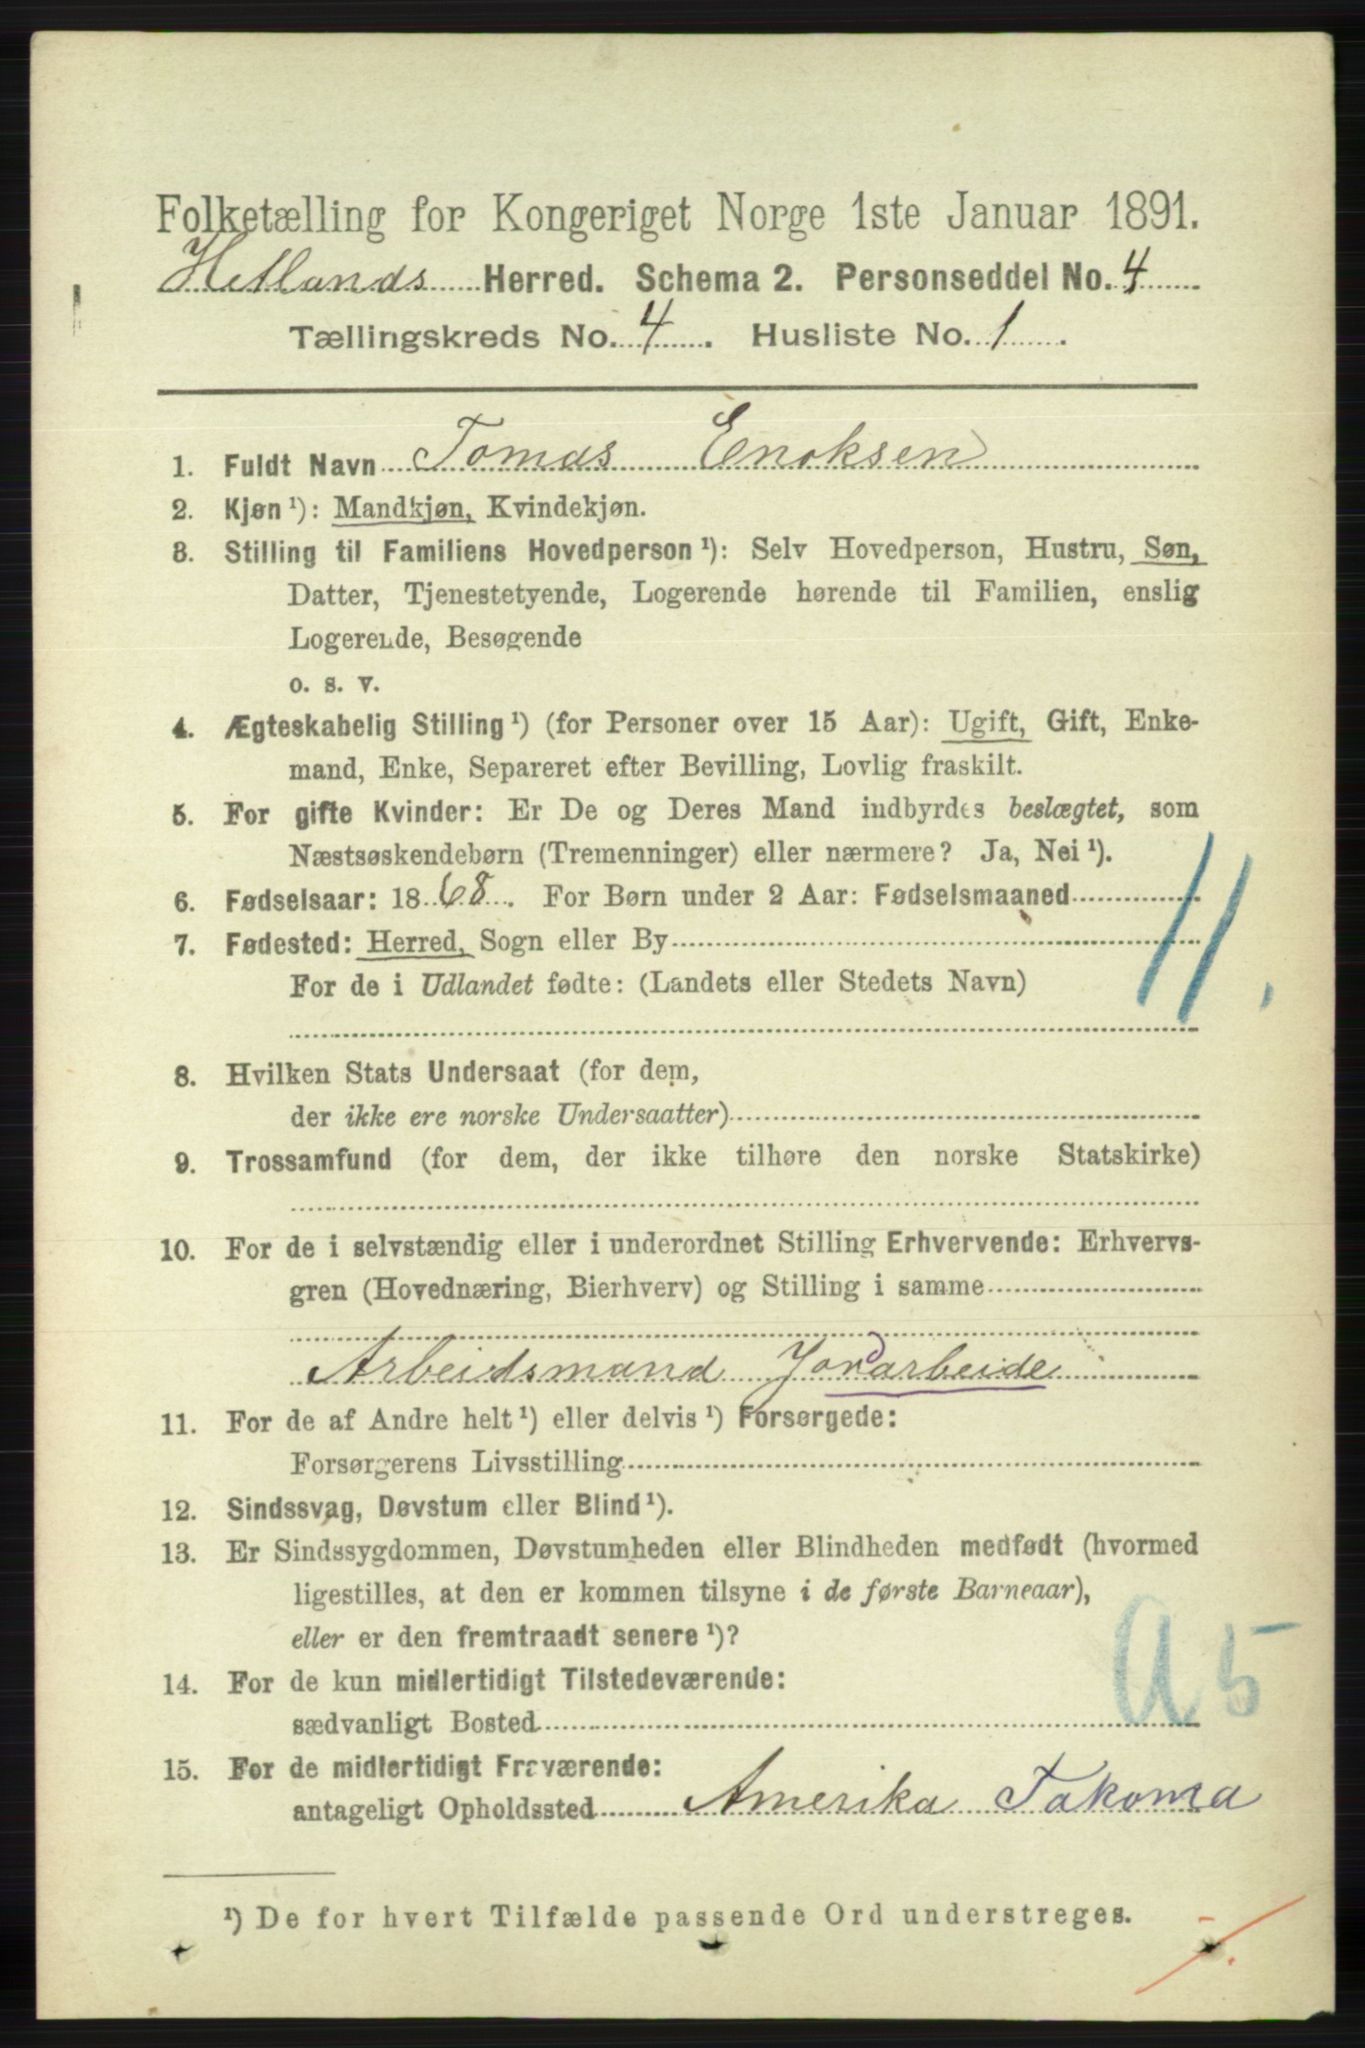 Folketælling for Kongeriget Norge 1ste Januar 1891.
Hetlands Herred. Schema 2. Personseddel No. 4
Tællingskreds No. 4. Husliste No. 1.
1. Fuldt Navn Tomas Enoksen
2. Kjøn ¹): Mandkjøn, Kvindekjøn.
3. Stilling til Familiens Hovedperson ¹): Selv Hovedperson, Hustru, Søn,
Datter, Tjenestetyende, Logerende hørende til Familien, enslig
Logerende, Besøgende
o. s. v.
4. Ægteskabelig Stilling ¹) (for Personer over 15 Aar): Ugift, Gift, Enke-
mand, Enke, Separeret efter Bevilling, Lovlig fraskilt.
5. For gifte Kvinder: Er De og Deres Mand indbyrdes beslægtet, som
Næstsøskendebørn (Tremenninger) eller nærmere? Ja, Nei ¹).
6. Fødselsaar: 1868. For Børn under 2 Aar: Fødselsmaaned
7. Fødested: Herred, Sogn eller By
11.
For de i Udlandet fødte: (Landets eller Stedets Navn)
8. Hvilken Stats Undersaat (for dem,
der ikke ere norske Undersaatter)
9. Trossamfund (for dem, der ikke tilhøre den norske Statskirke)
10. For de i selvstændig eller i underordnet Stilling Erhvervende: Erhvervs-
gren (Hovednæring, Bierhverv) og Stilling i samme
Arbeidsmand Jordarbeide
11. For de af Andre helt ¹) eller delvis ¹) Forsørgede:
Forsørgerens Livsstilling
12. Sindssvag, Døvstum eller Blind ¹).
13. Er Sindssygdommen, Døvstumheden eller Blindheden medfødt (hvormed
ligestilles, at den er kommen tilsyne i de første Barneaar),
eller er den fremtraadt senere ¹)?
14. For de kun midlertidigt Tilstedeværende:
sædvanligt Bosted
a 5
15. For de midlertidigt Fraværende:
antageligt Opholdssted Amerika Takoma
¹) De for hvert Tilfælde passende Ord understreges.